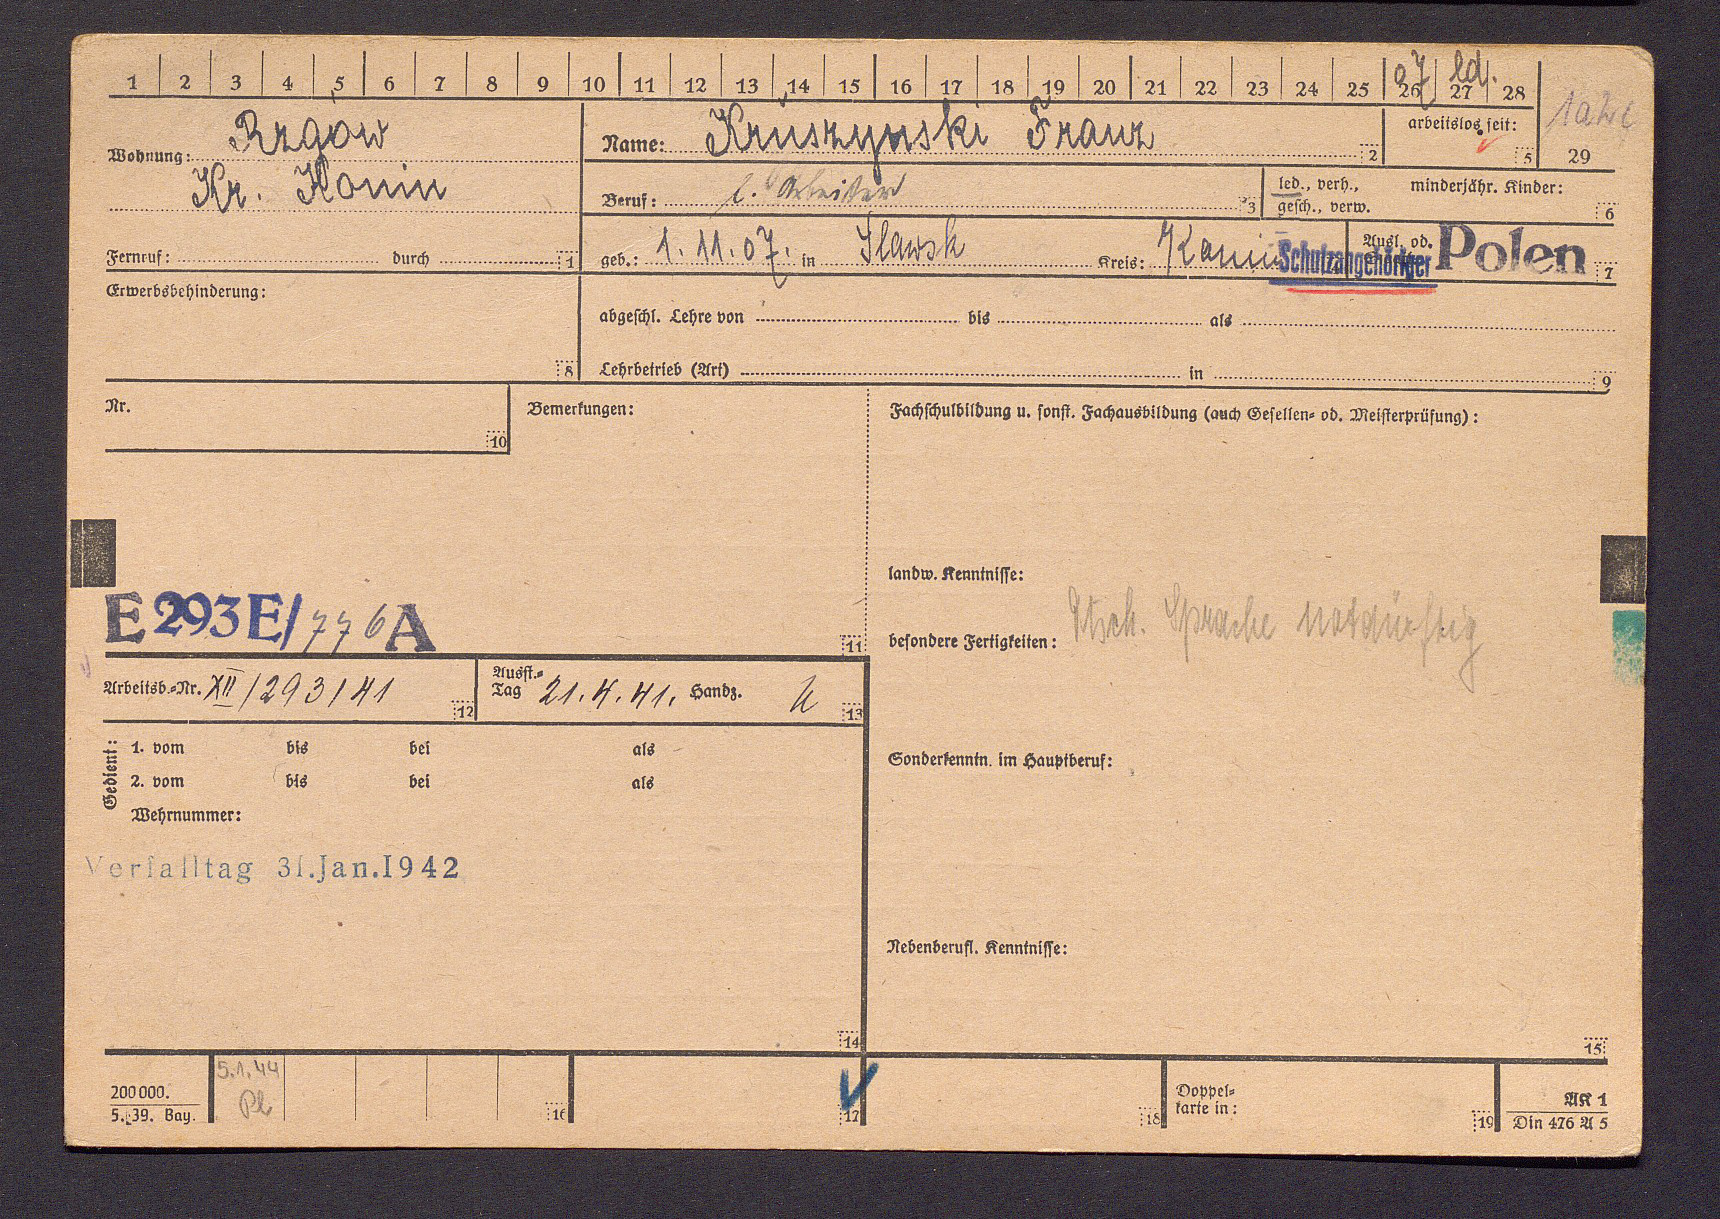 1 2 3 4 5 6 7 8 9 10 11 12 13 14 15 16 17 18 19 20 21 22 23 24 25 26 27 28
07 led.
29
Wohnung: Rzgow
Kr. Konin
Fernruf: durch 1
Name: Kruszynski Franz 2
arbeitslos seit: 5
Beruf: l. Arbeiter 3
led., verh., gesch., verw.
minderjähr. Kinder: 6
geb.: 1.11.07. in Slawsk Kreis: Konin
Ausl. od. Polen 7
Schutzangehöriger
Erwerbsbehinderung: 8
abgeschl. Lehre von bis als
Lehrbetrieb (Art) in 9
Nr. 10
Bemerkungen:
Fachschulbildung u. sonst. Fachausbildung (auch Gesellen- od. Meisterprüfung):
landw. Kenntnisse:
E 293 E/776 A
11
besondere Fertigkeiten: Dtsch. Sprache notdürftig
Arbeitsb.-Nr. XII/293/41 12
Ausst.-Tag 21.4.41. Handz. 13
Gedient:
1. vom bis bei als
2. vom bis bei als
Wehrnummer:
Sonderkenntn. im Hauptberuf:
Verfalltag 31.Jan.1942
Nebenberufl. Kenntnisse:
14
15
5.1.44
Pl
200000.
5. 39. Bay.
16
17
18
Doppelkarte in: 19
AK 1
Din 476 A 5